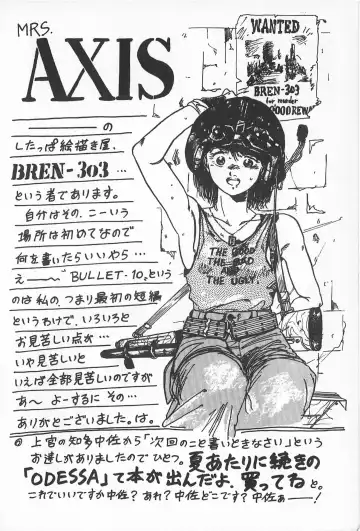 MRS.
AXIS
WANTED
BREN-303
for murder
GOOD REW
の
したっぱ絵描き屋、
BREN-303…
という者であります。
自分はその、こーいう
場所は初めてなので
何を書いたらいいやら…
え〜〜〝BULLET-10、という
のは私の、つまり最初の短編
というわけで、いろいろと
お見苦しい点が…
いや見苦しいと
いえば全部見苦しいのですが
あ〜よーするに その…
ありがとございました。は。
THE GOOD
THE BAD
AND
THE UGLY.
@ 上官の知多中佐から「次回のこと書いときなさい」という
お達しがありましたのでひとつ。夏あたりに続きの
「ODESSA」て本が出んだよ、買ってねと。
これでいいですか中佐？あれ？中佐どこです？中佐ぁー！